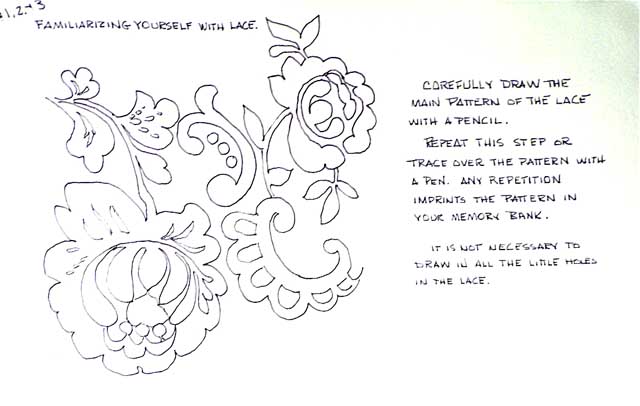 1, 2, + 3
FAMILIARIZING YOURSELF WITH LACE.
CAREFULLY DRAW THE
MAIN PATTERN OF THE LACE
WITH A PENCIL.
REPEAT THIS STEP OR
TRACE OVER THE PATTERN WITH
A PEN. ANY REPETITION
IMPRINTS THE PATTERN IN
YOUR MEMORY BANK.
IT IS NOT NECESSARY TO
DRAW IN ALL THE LITTLE HOLES
IN THE LACE.